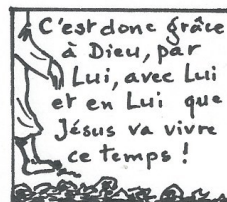 C'est donc grâce
à Dieu, par
Lui, avec Lui
et en Lui que
Jésus va vivre
ce temps !